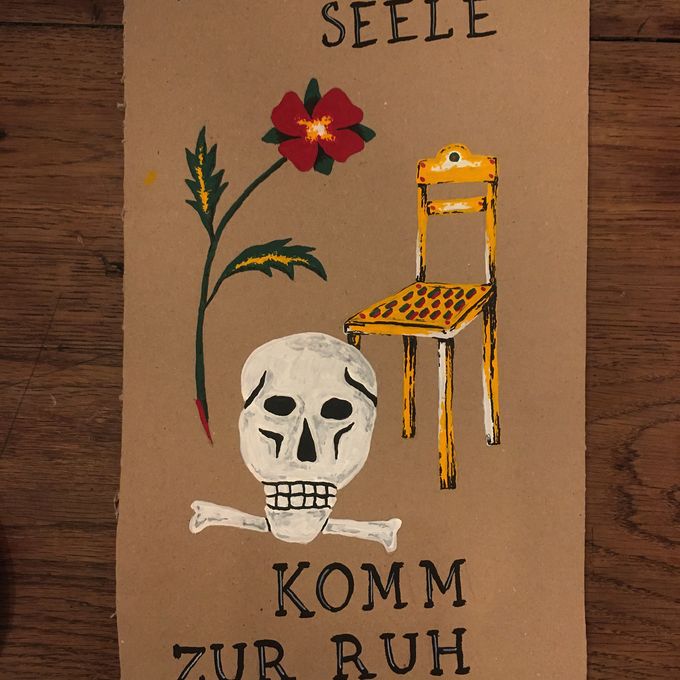 SEELE
KOMM
ZUR RUH